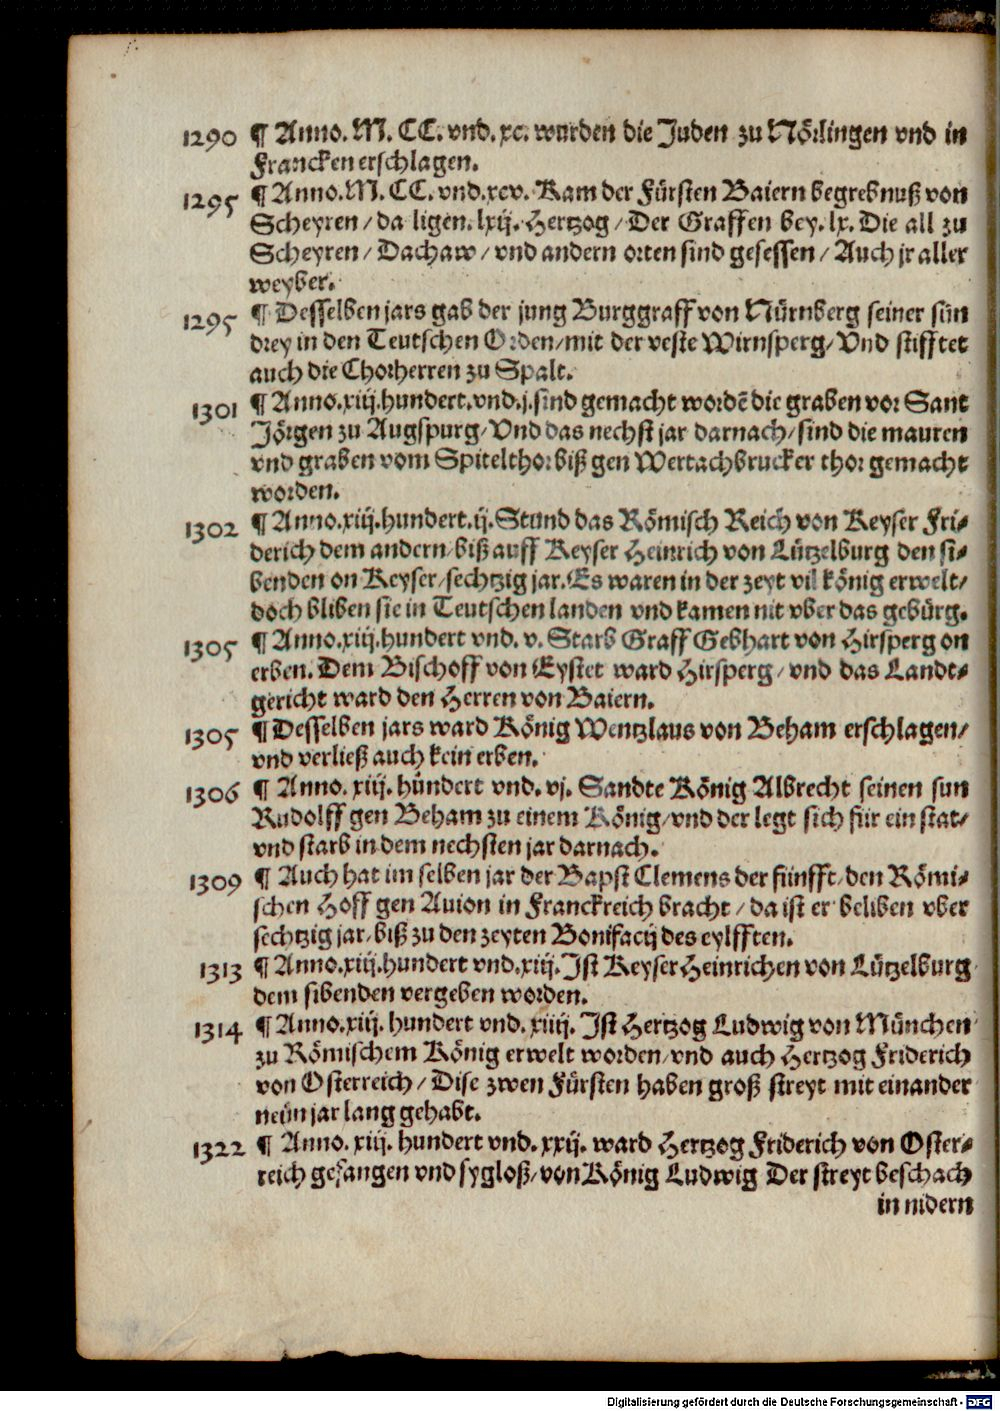 1290 ¶ Anno. M. CC. vnd. xc. wurden die Juden zu Nörlingen vnd in
Francken erschlagen.
1295 ¶ Anno. M. CC. vnd. xcv. Kam der Fürsten Baiern begrebnuß von
Scheyren / da ligen. lxij. Hertzog / Der Graffen bey. lx. Die all zu
Scheyren / Dachaw / vnd andern orten sind gesessen / Auch jr aller
weyber.
1295 ¶ Desselben jars gab der jung Burggraff von Nürnberg seiner sün
drey in den Teutschen Orden / mit der veste Wirnsperg / Vnd stifftet
auch die Chorherren zu Spalt.
1301 ¶ Anno. xiij. hundert. vnd. j. sind gemacht wordē die graben vor Sant
Jörgen zu Augspurg / Vnd das nechst jar darnach / sind die mauren
vnd graben vom Spitelthor biß gen Wertachbrucker thor gemacht
worden.
1302 ¶ Anno. xiij. hundert. ij. Stund das Römisch Reich von Keyser Fri-
derich dem andern biß auff Keyser Heinrich von Lützelburg den si-
benden on Keyser / sechtzig jar. Es waren in der zeyt vil könig erwelt /
doch bliben sie in Teutschen landen vnd kamen nit vber das gebürg.
1305 ¶ Anno. xiij. hundert vnd. v. Starb Graff Gebhart von Hirsperg on
erben. Dem Bischoff von Eystet ward Hirsperg / vnd das Landt-
gericht ward den Herren von Baiern.
1305 ¶ Desselben jars ward König Wentzlaus von Beham erschlagen /
vnd verließ auch kein erben.
1306 ¶ Anno. xiij. hundert vnd. vj. Sandte König Albrecht seinen sun
Rudolff gen Beham zu einem König / vnd der legt sich für ein stat /
vnd starb in dem nechsten jar darnach.
1309 ¶ Auch hat im selben jar der Bapst Clemens der fünfft / den Römi-
schen Hoff gen Auion in Franckreich bracht / da ist er beliben vber
sechtzig jar / biß zu den zeyten Bonifacij des eylfften.
1313 ¶ Anno. xiij. hundert vnd. xiij. Ist Keyser Heinrichen von Lützelburg
dem sibenden vergeben worden.
1314 ¶ Anno. xiij. hundert vnd. xiiij. Ist Hertzog Ludwig von München
zu Römischem König erwelt worden / vnd auch Hertzog Friderich
von Osterreich / Dise zwen Fürsten haben groß streyt mit einander
neün jar lang gehabt.
1322 ¶ Anno. xiij. hundert vnd. xxij. ward Hertzog Friderich von Oster-
reich gefangen vnd sygloß / von König Ludwig Der streyt beschach
in nidern
Digitalisierung gefördert durch die Deutsche Forschungsgemeinschaft - DFG